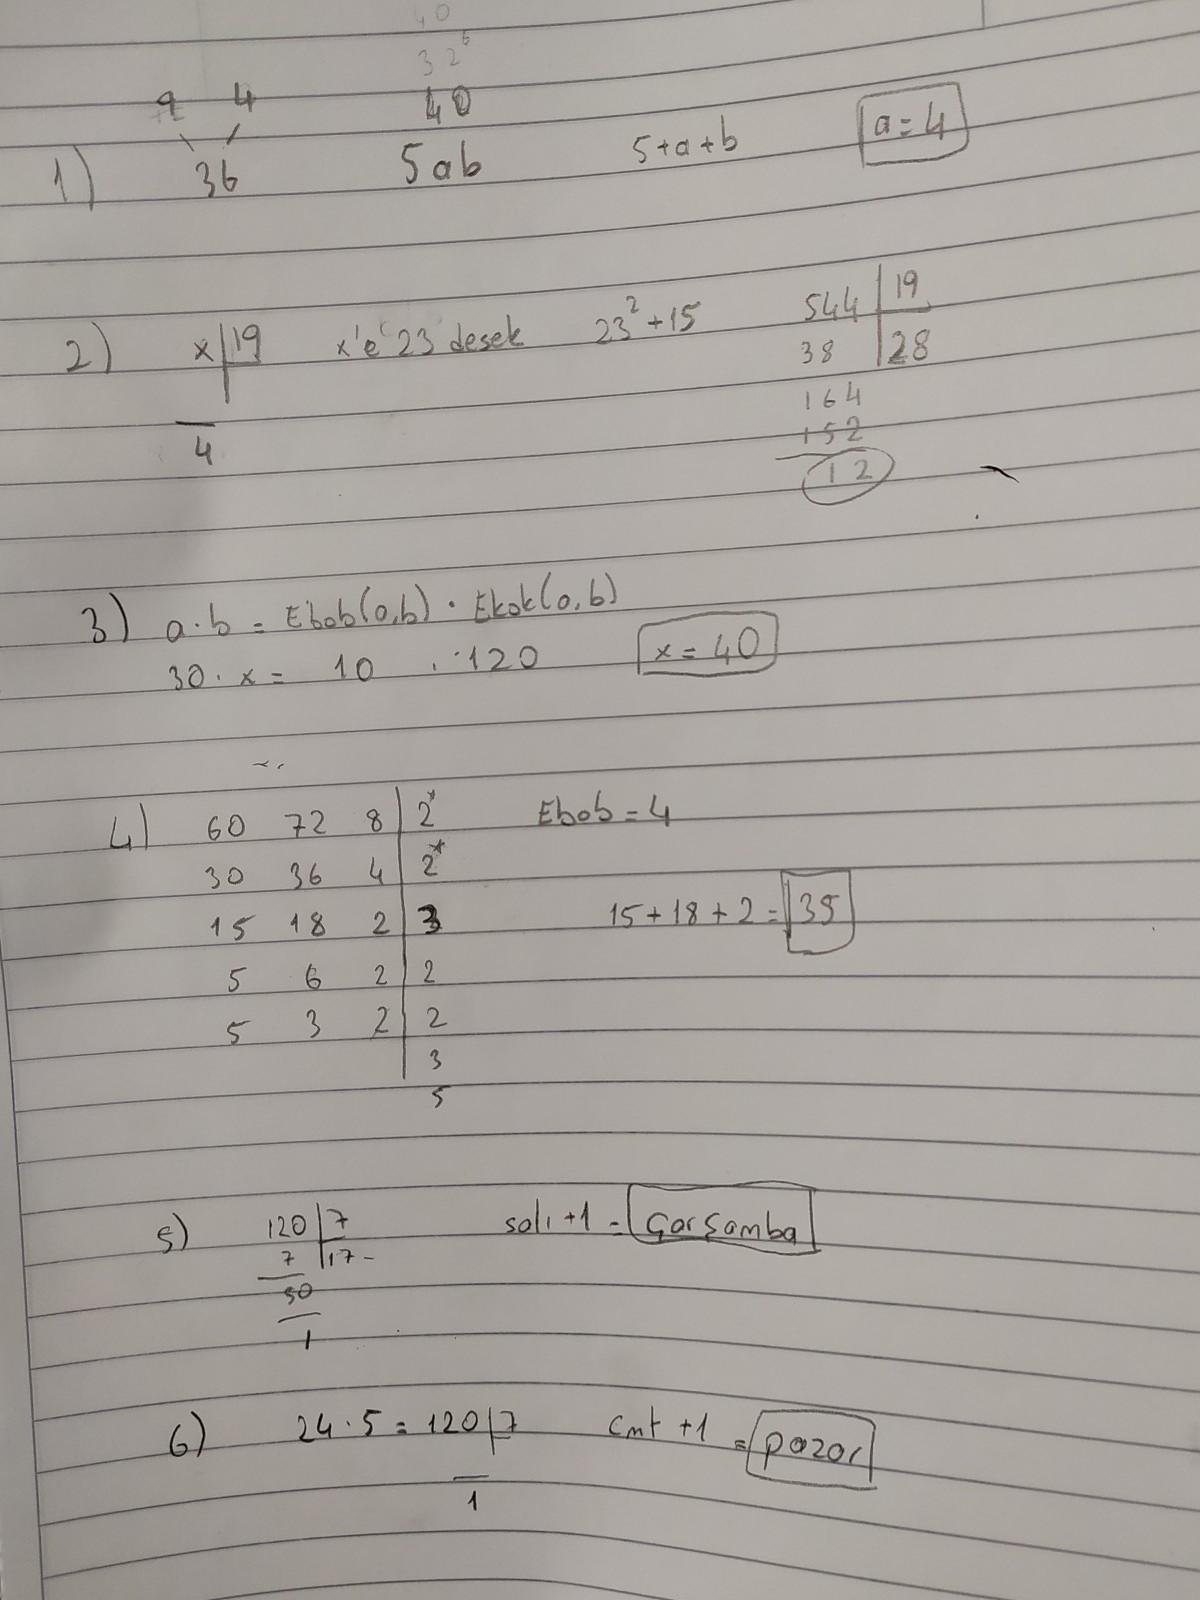 40
32⁶
9 4 40
1) 36 5ab 5+a+b a=4
2) x | 19 x'e 23 desek 23²+15 544 | 19
38 | 28
164
152
4 12
3) a·b = Ebob(a,b) · Ekok(a,b)
30·x = 10 · 120 x=40
4) 60 72 8 | 2* Ebob = 4
30 36 4 | 2*
15 18 2 | 3 15+18+2 = 35
5 6 2 | 2
5 3 2 | 2
3
5
5) 120 | 7 salı +1 = Çarşamba
7 | 17
50
1
6) 24·5 = 120 | 7 Cmt +1 = pazar
1